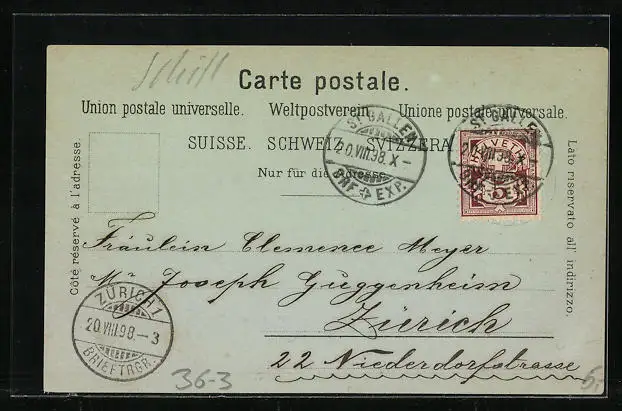 Schiff
Carte postale.
Union postale universelle. Weltpostverein. Unione postale universale.
SUISSE. SCHWEIZ. SVIZZERA.
Nur für die Adresse.
Côté réservé à l'adresse.
Lato riservato all' indirizzo.
ST GALLEN
20.VIII.98.X-
BRF. EXP.
ST GALLEN
20.VIII.98.X
BRF. EXP.
HELVETIA
5
Fräulein Clemence Meyer
Mr Joseph Guggenheim
Zürich
22 Niederdorfstrasse
ZÜRICH 1
20.VIII.98.-3
BRIEFTRGR.
36-3
6,-